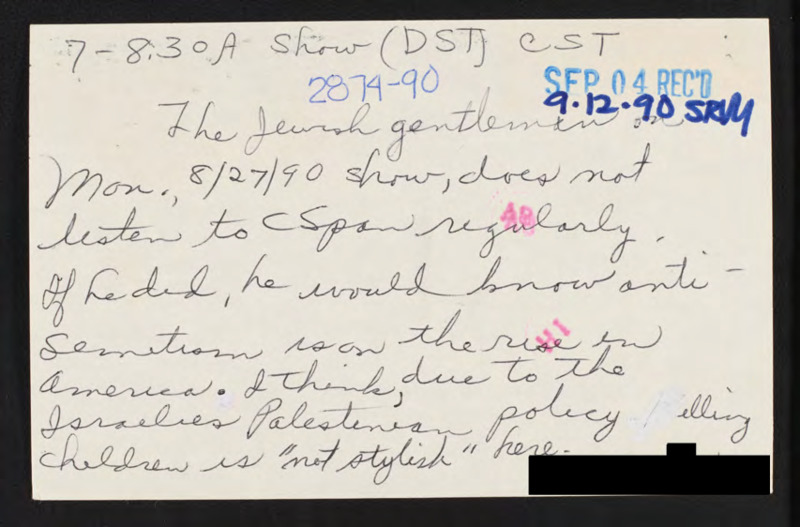 7-8:30A Show (DST) CST
2874-90
SEP 04 REC'D
9.12.90 SRVM
The Jewish gentleman on
Mon., 8/27/90 show, does not
listen to CSpan regularly.
If he did, he would know anti-
Semetism is on the rise in
America. I think, due to the
Israelies Palestenian policy
children is "not stylish" here.